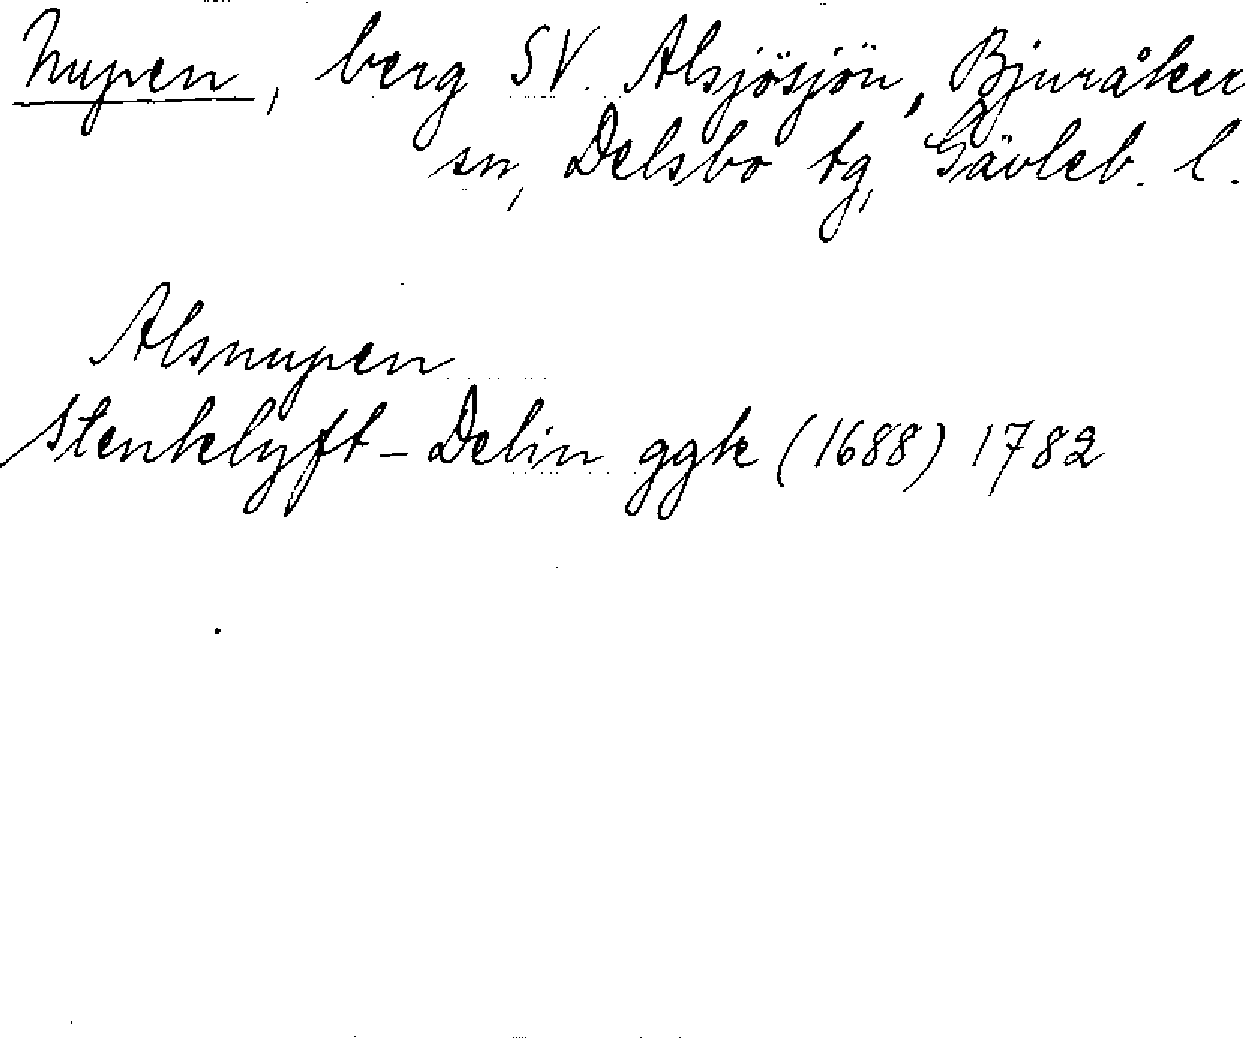 Nupen, berg SV. Alsjösjön, Bjuråker
sn, Delsbo tg, Gävleb. l.
Alsnupen
Stenklyft - Delin ggk (1688) 1782